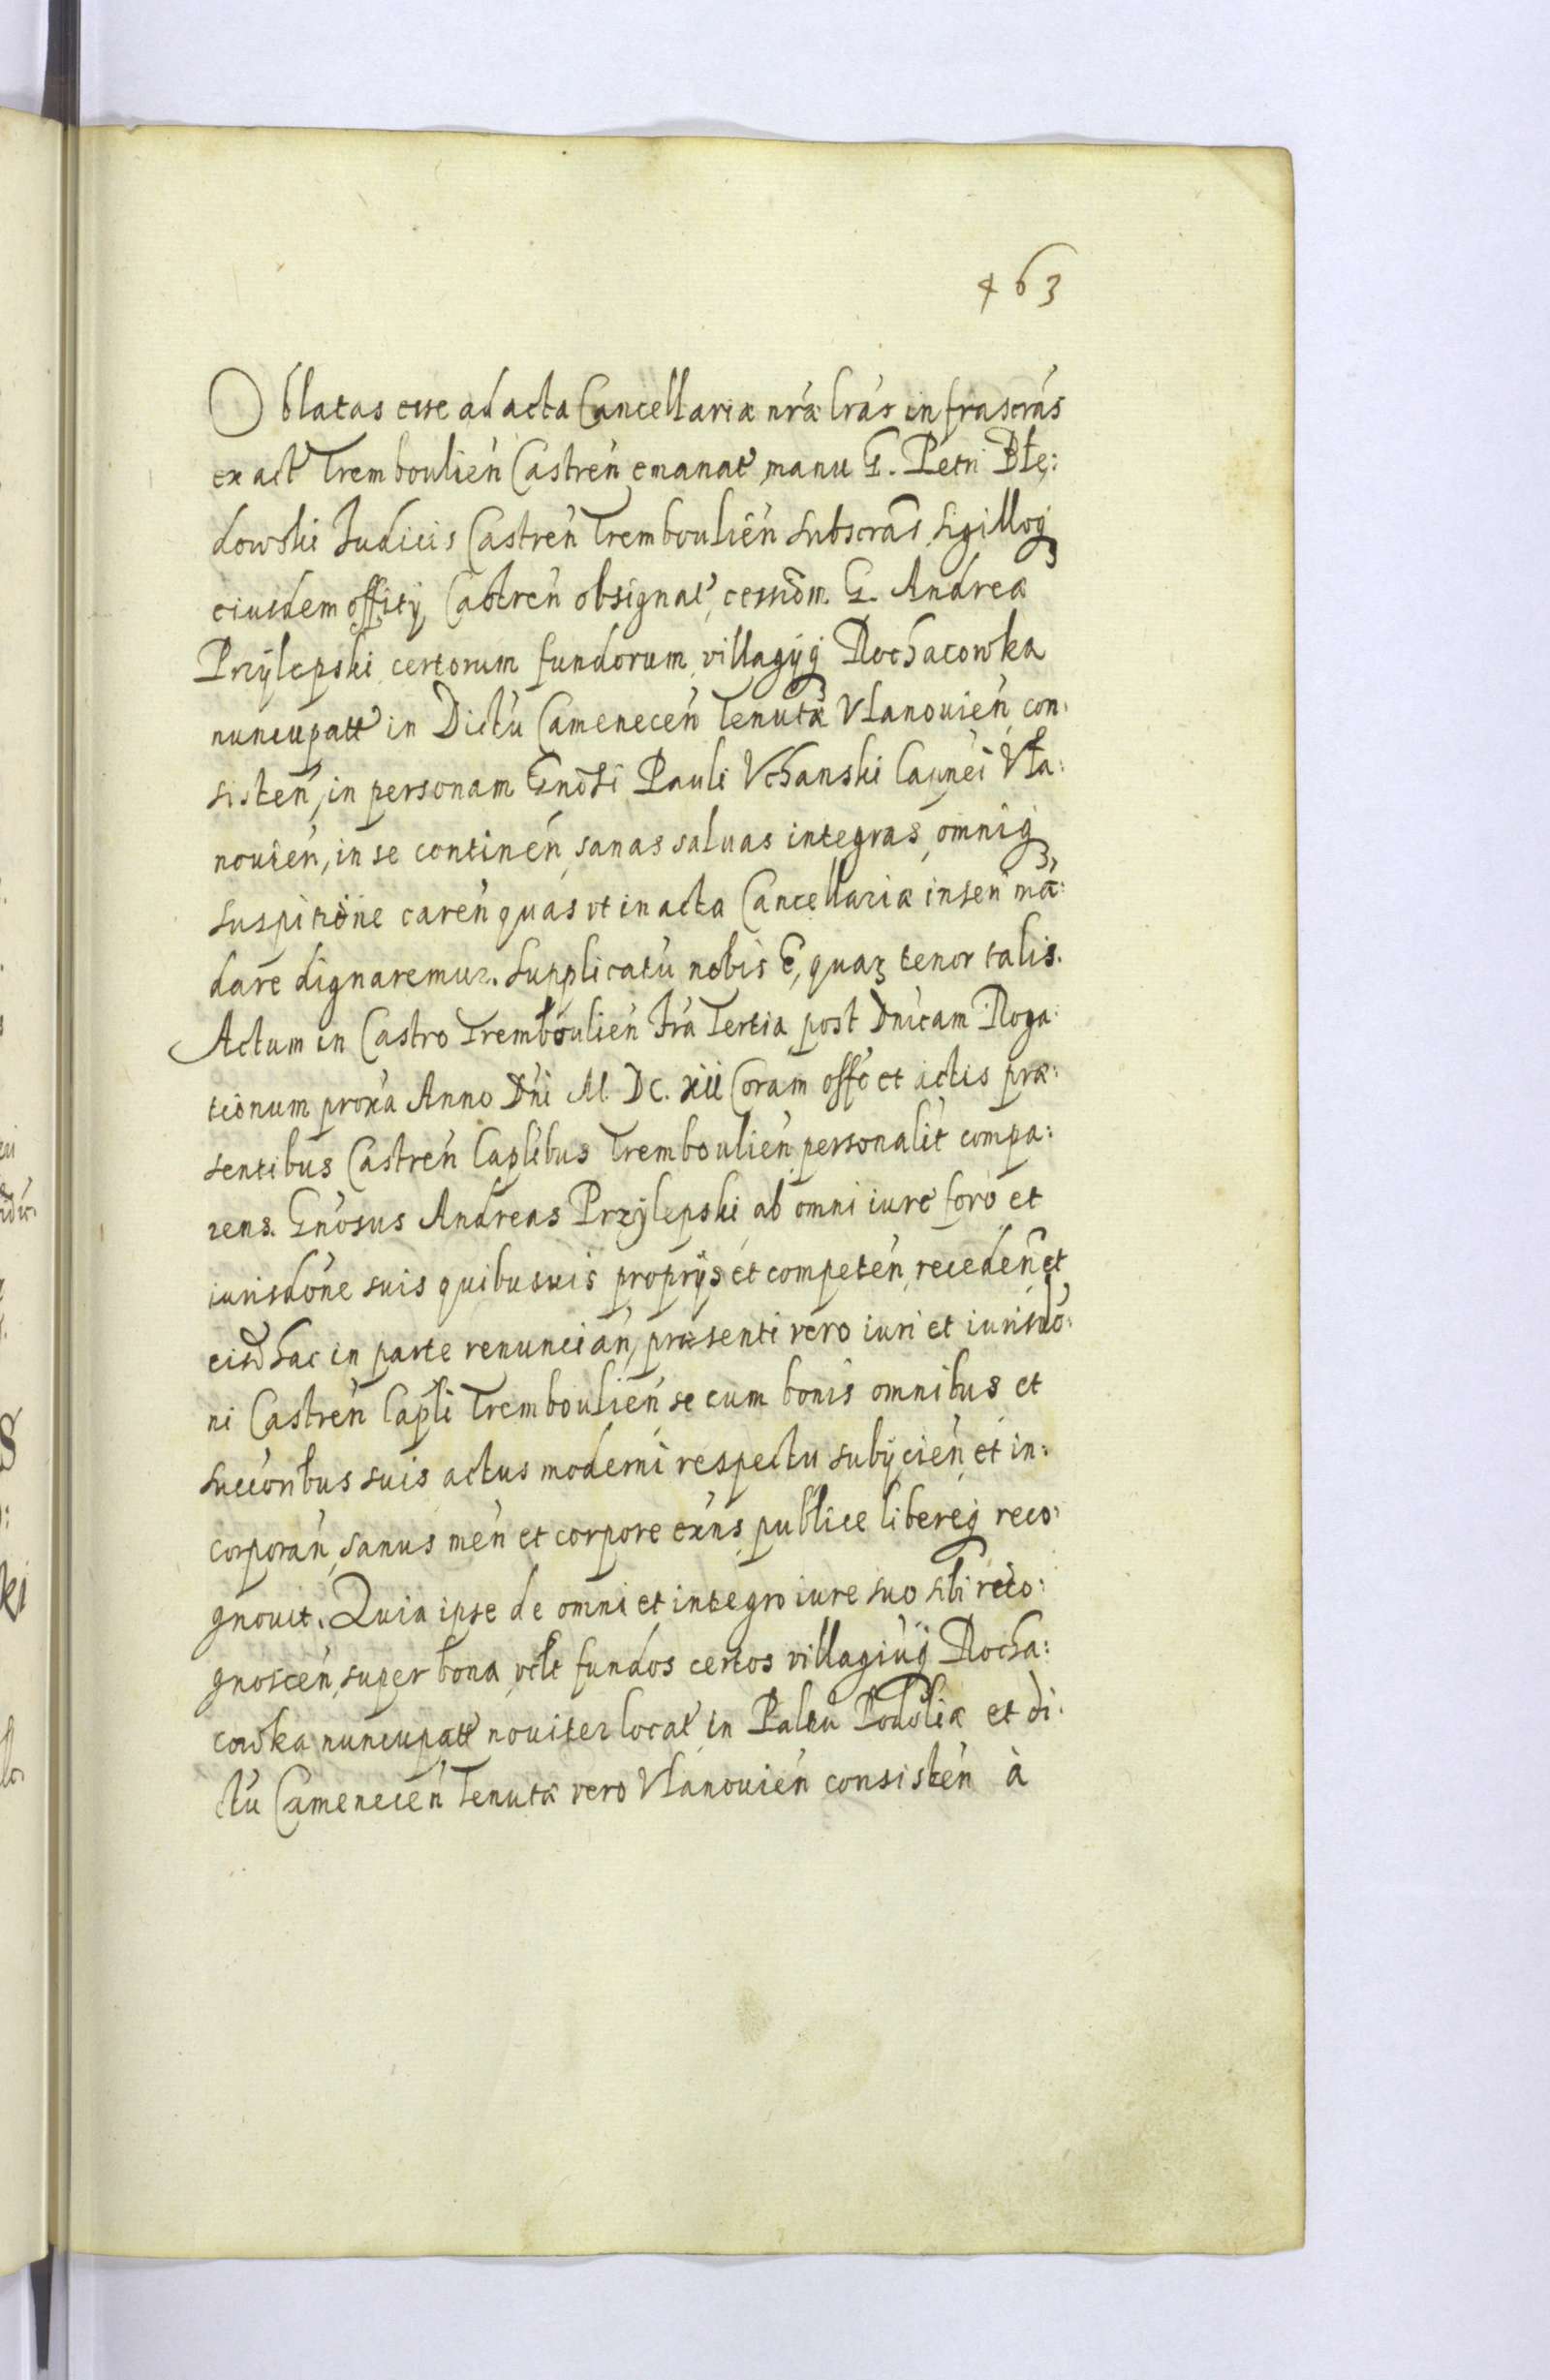 463
Oblatas esse ad acta Cancellariæ nr̃æ lr̃as infrascr̃as
ex act' Tremboulień Castreń emanat' manu G. Petri Błę:
dowski Judicis Castreń Tremboulień subscr̃as sigilloq3
eiusdem offitÿ Castreń obsignat', cessiõm G. Andreæ
Przÿlepski certorum fundorum villagÿq3 Rochacowka
nuncupatt' in Dictu Cameneceń Tenutæ Vlanouień con:
sisteń, in personam Gnõsi Pauli Vchanski Capnei Vla:
nouień, in se contineń sanas saluas integras, omniq3
suspitione careń quas vt in acta Cancellariæ inserı̃ mã:
dare dignaremur. Supplicatũ nobis ẽ, quar3 tenor talis.
Actum in Castro Tremboulień fr̃a Tertia post Dnĩcam Roga:
tionum prox̃a Anno Dñi M. DC. xiii Coram offõ et actis præ:
sentibus Castreń Caplĩbus Tremboulień personalit' compa:
rens. Gnõsus Andreas Przÿlepski ab omni iure foro et
iurisdõne suis quibusuis proprÿs et competeń recedeń et
eisd̃ hac in parte renunciań, præsenti vero iuri et iurisdõ:
ni Castreń Caplĩ Tremboulień se cum bonis omnibus et
succõribus suis actus moderni respectu subÿcień et in:
corporań, sanus meń et corpore ex̃ns publice libereq3 reco:
gnouit. Quia ipse de omni et integro iure suo sibi reco:
gnosceń, super bona vtlt fundos certos villagiũq3 Rocha:
cowka nuncupatt' nouiter locat' in Paltu Podoliæ et di:
ctu Cameneceń Tenutæ vero Vlanouień consisteń à